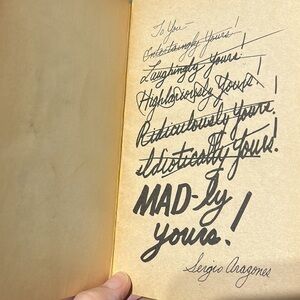 To You—
Entertainingly Yours!
Laughingly Yours!
Highlariously Yours!
Ridiculously Yours!
Idiotically Yours!
MAD-ly
yours!
Sergio Aragones